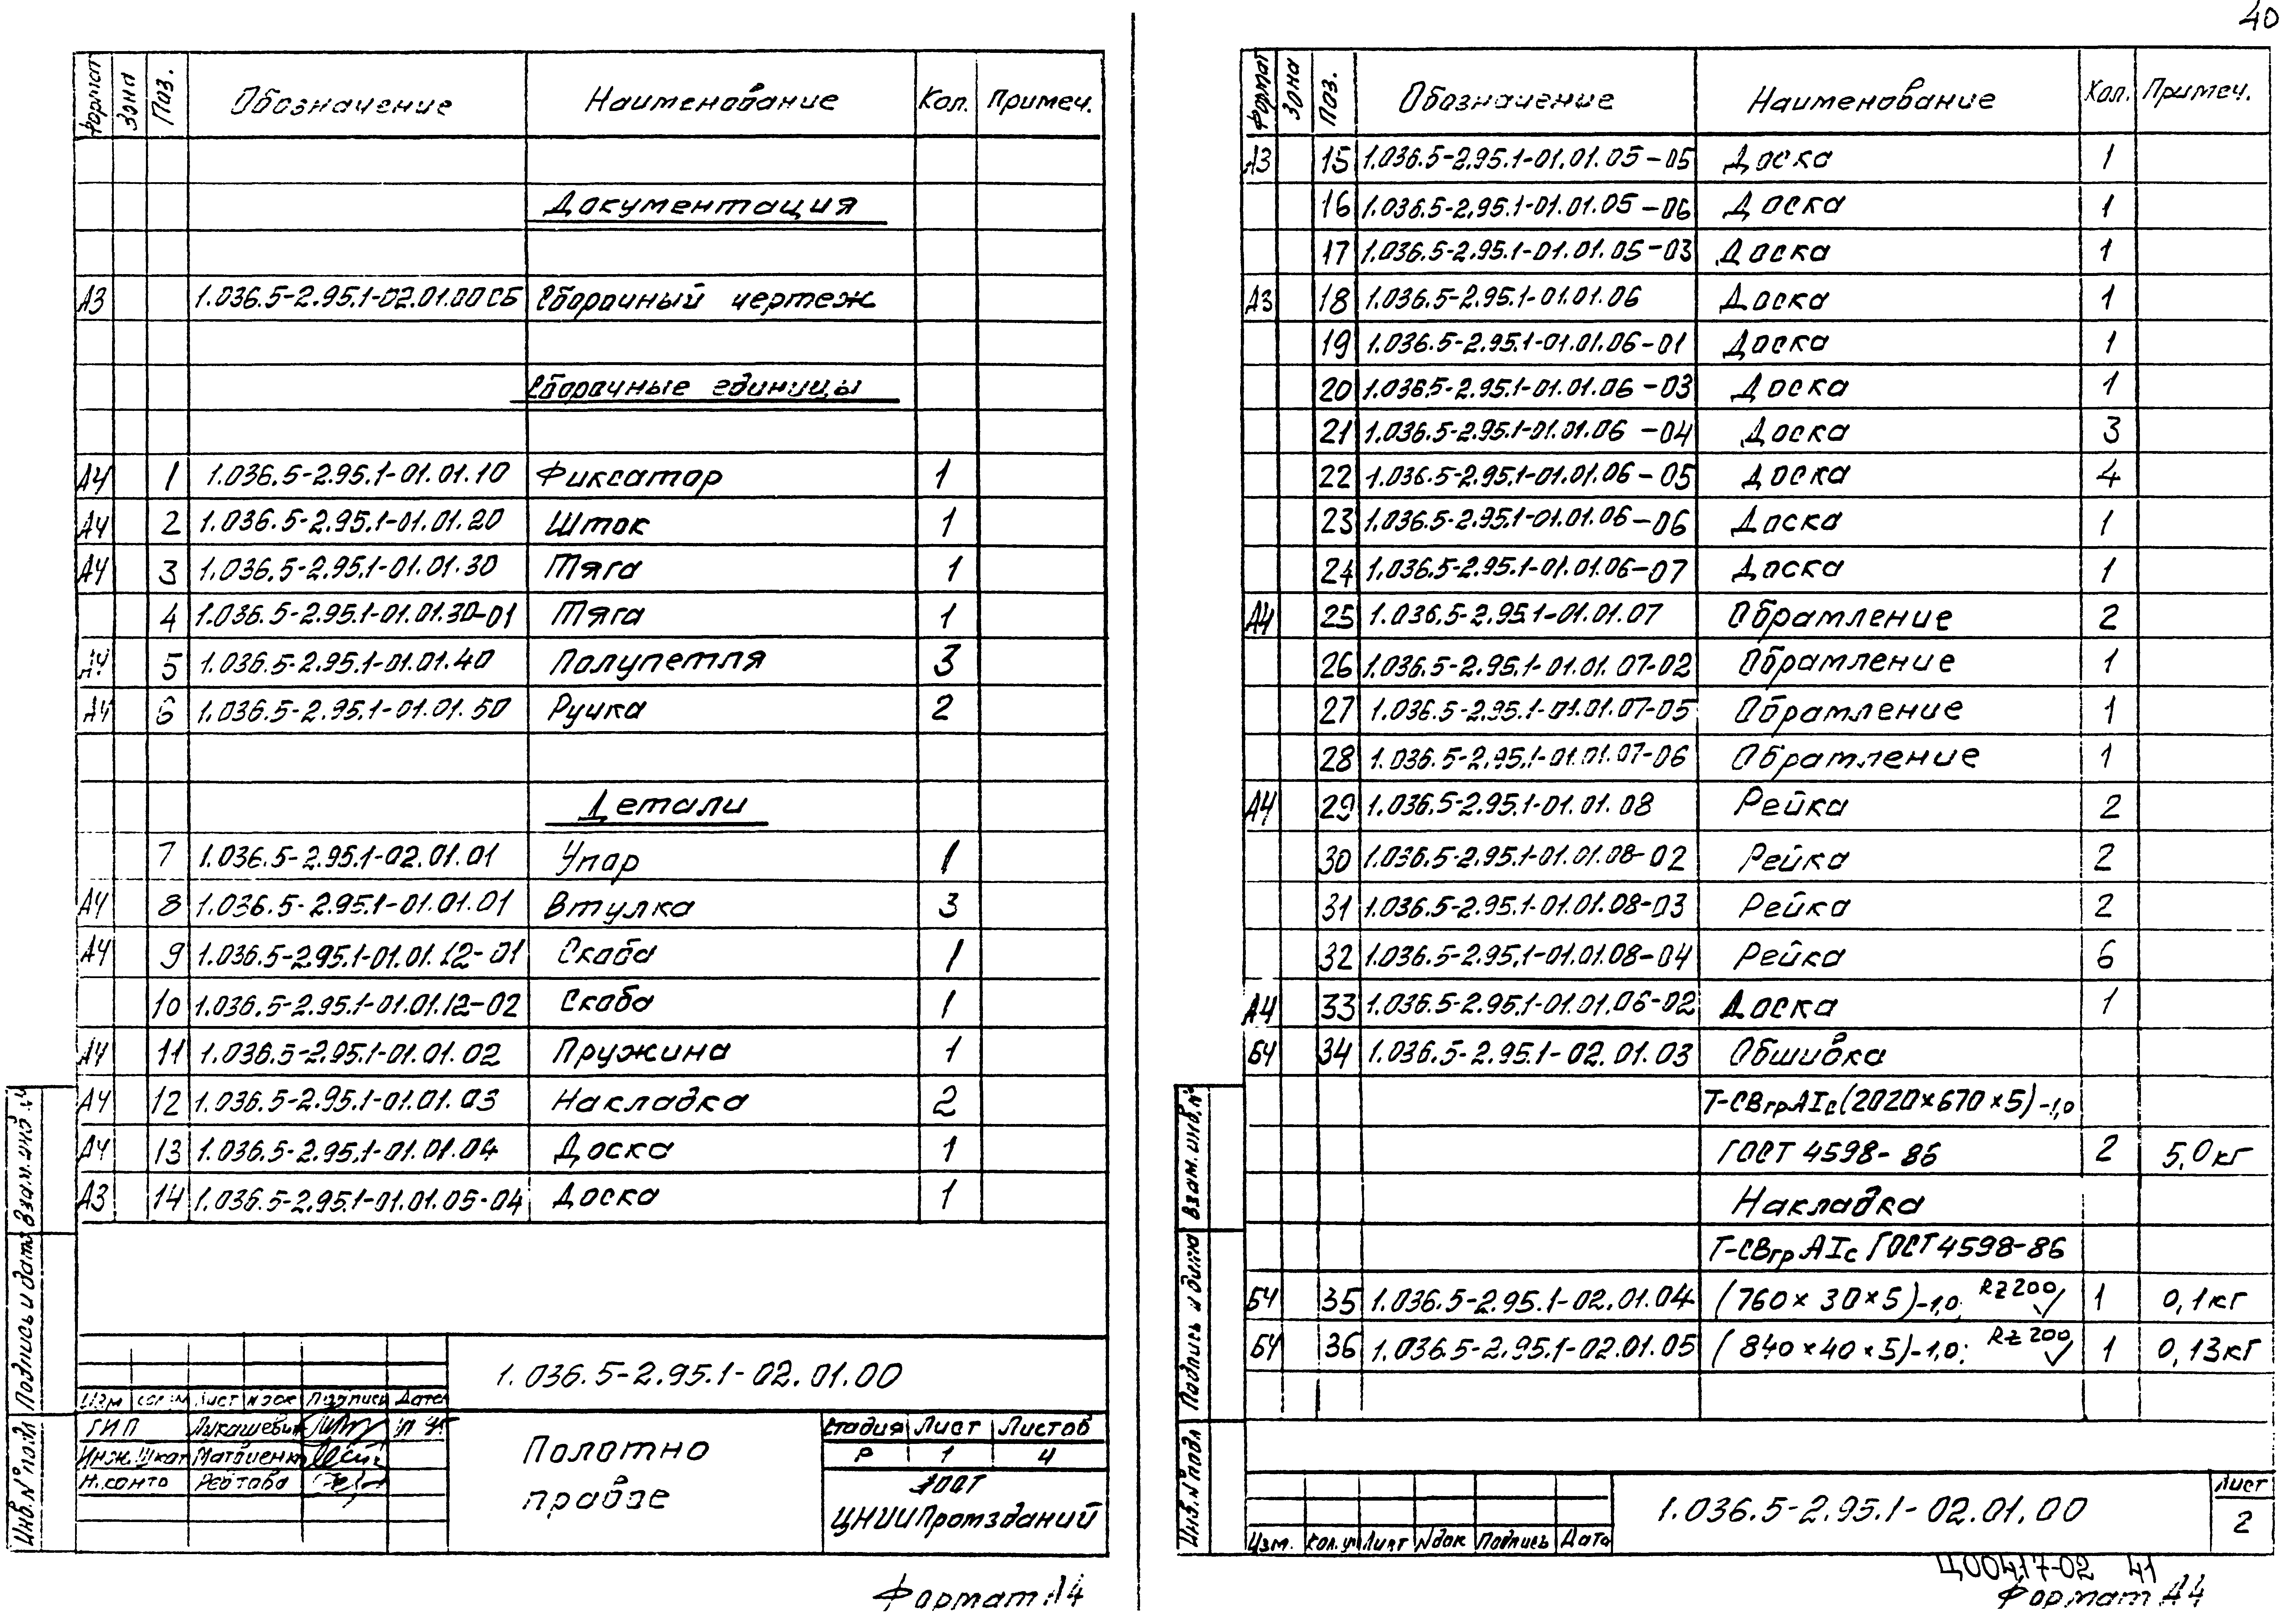 40
Формат Зона Поз. Обозначение Наименование Кол. Примеч.
Документация
А3 1.036.5-2.95.1-02.01.00СБ Сборочный чертеж
Сборочные единицы
А4 1 1.036.5-2.95.1-01.01.10 Фиксатор 1
А4 2 1.036.5-2.95.1-01.01.20 Шток 1
А4 3 1.036.5-2.95.1-01.01.30 Тяга 1
4 1.036.5-2.95.1-01.01.30-01 Тяга 1
А4 5 1.036.5-2.95.1-01.01.40 Полупетля 3
А4 6 1.036.5-2.95.1-01.01.50 Ручка 2
Детали
7 1.036.5-2.95.1-02.01.01 Упор 1
А4 8 1.036.5-2.95.1-01.01.01 Втулка 3
А4 9 1.036.5-2.95.1-01.01.12-01 Скоба 1
10 1.036.5-2.95.1-01.01.12-02 Скоба 1
А4 11 1.036.5-2.95.1-01.01.02 Пружина 1
А4 12 1.036.5-2.95.1-01.01.03 Накладка 2
А4 13 1.036.5-2.95.1-01.01.04 Доска 1
А3 14 1.036.5-2.95.1-01.01.05-04 Доска 1
Взам.инв.№
Подпись и дата
Инв.№ подл
1.036.5-2.95.1-02.01.00
Изм Лист №док Подпись Дата
ГИП Лукашевич
Инж.Iкат Матвиенко
Н.контр
Полотно
правое
Стадия Лист Листов
Р 1 4
ЦНИИПромзданий
Формат А4
Формат Зона Поз. Обозначение Наименование Кол. Примеч.
А3 15 1.036.5-2.95.1-01.01.05-05 Доска 1
16 1.036.5-2.95.1-01.01.05-06 Доска 1
17 1.036.5-2.95.1-01.01.05-03 Доска 1
А3 18 1.036.5-2.95.1-01.01.06 Доска 1
19 1.036.5-2.95.1-01.01.06-01 Доска 1
20 1.036.5-2.95.1-01.01.06-03 Доска 1
21 1.036.5-2.95.1-01.01.06-04 Доска 3
22 1.036.5-2.95.1-01.01.06-05 Доска 4
23 1.036.5-2.95.1-01.01.06-06 Доска 1
24 1.036.5-2.95.1-01.01.06-07 Доска 1
А4 25 1.036.5-2.95.1-01.01.07 Обрамление 2
26 1.036.5-2.95.1-01.01.07-02 Обрамление 1
27 1.036.5-2.95.1-01.01.07-05 Обрамление 1
28 1.036.5-2.95.1-01.01.07-06 Обрамление 1
А4 29 1.036.5-2.95.1-01.01.08 Рейка 2
30 1.036.5-2.95.1-01.01.08-02 Рейка 2
31 1.036.5-2.95.1-01.01.08-03 Рейка 2
32 1.036.5-2.95.1-01.01.08-04 Рейка 6
А4 33 1.036.5-2.95.1-01.01.06-02 Доска 1
БЧ 34 1.036.5-2.95.1-02.01.03 Обшивка
Т-СВгрАIс(2020×670×5)-1,0
ГОСТ 4598-86 2 5,0кг
Накладка
Т-СВгрАIс ГОСТ4598-86
БЧ 35 1.036.5-2.95.1-02.01.04 (760×30×5)-1,0; Rz200 1 0,1кг
БЧ 36 1.036.5-2.95.1-02.01.05 (840×40×5)-1,0; Rz200 1 0,13кг
Взам.инв.№
Подпись и дата
Инв.№ подл
1.036.5-2.95.1-02.01.00
Лист
2
Изм. Кол.уч Лист №док Подпись Дата
Ц00417-02 41
Формат А4